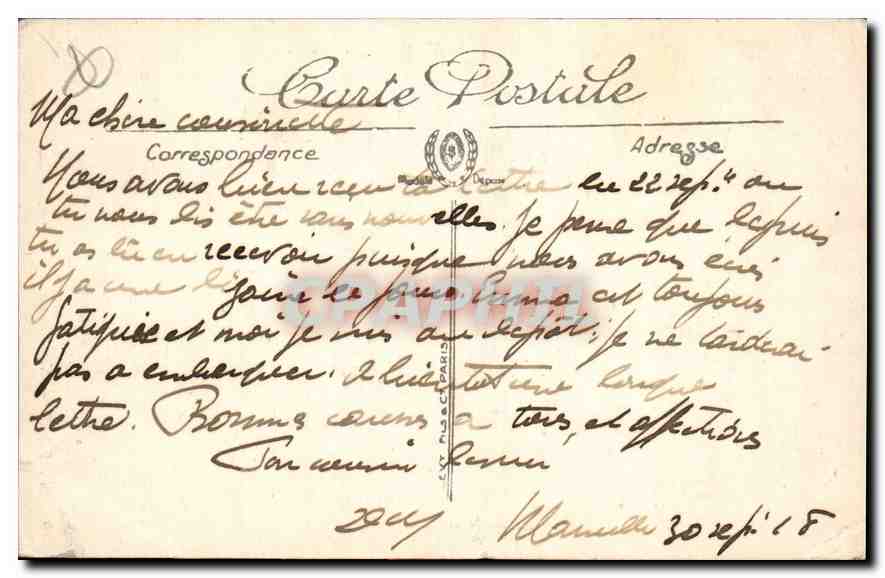 Carte Postale
Ma chère cousinette
Correspondance
Adresse
Modèle Déposé
Nous avons bien reçu ta lettre du 22 sept où
tu nous dis être sans nouvelles. Je pense que depuis
tu as bien recevoir puisque nous avons écrit
il y a une de jours. est toujours
fatiguée et moi je suis au dépôt, je ne tarderai
pas à embarquer. A bientôt une longue
lettre. Bonnes à tous, et affections
Ton cousin
Marseille 30 sept 18
CPAPHIL
LEVY FILS & Cie PARIS